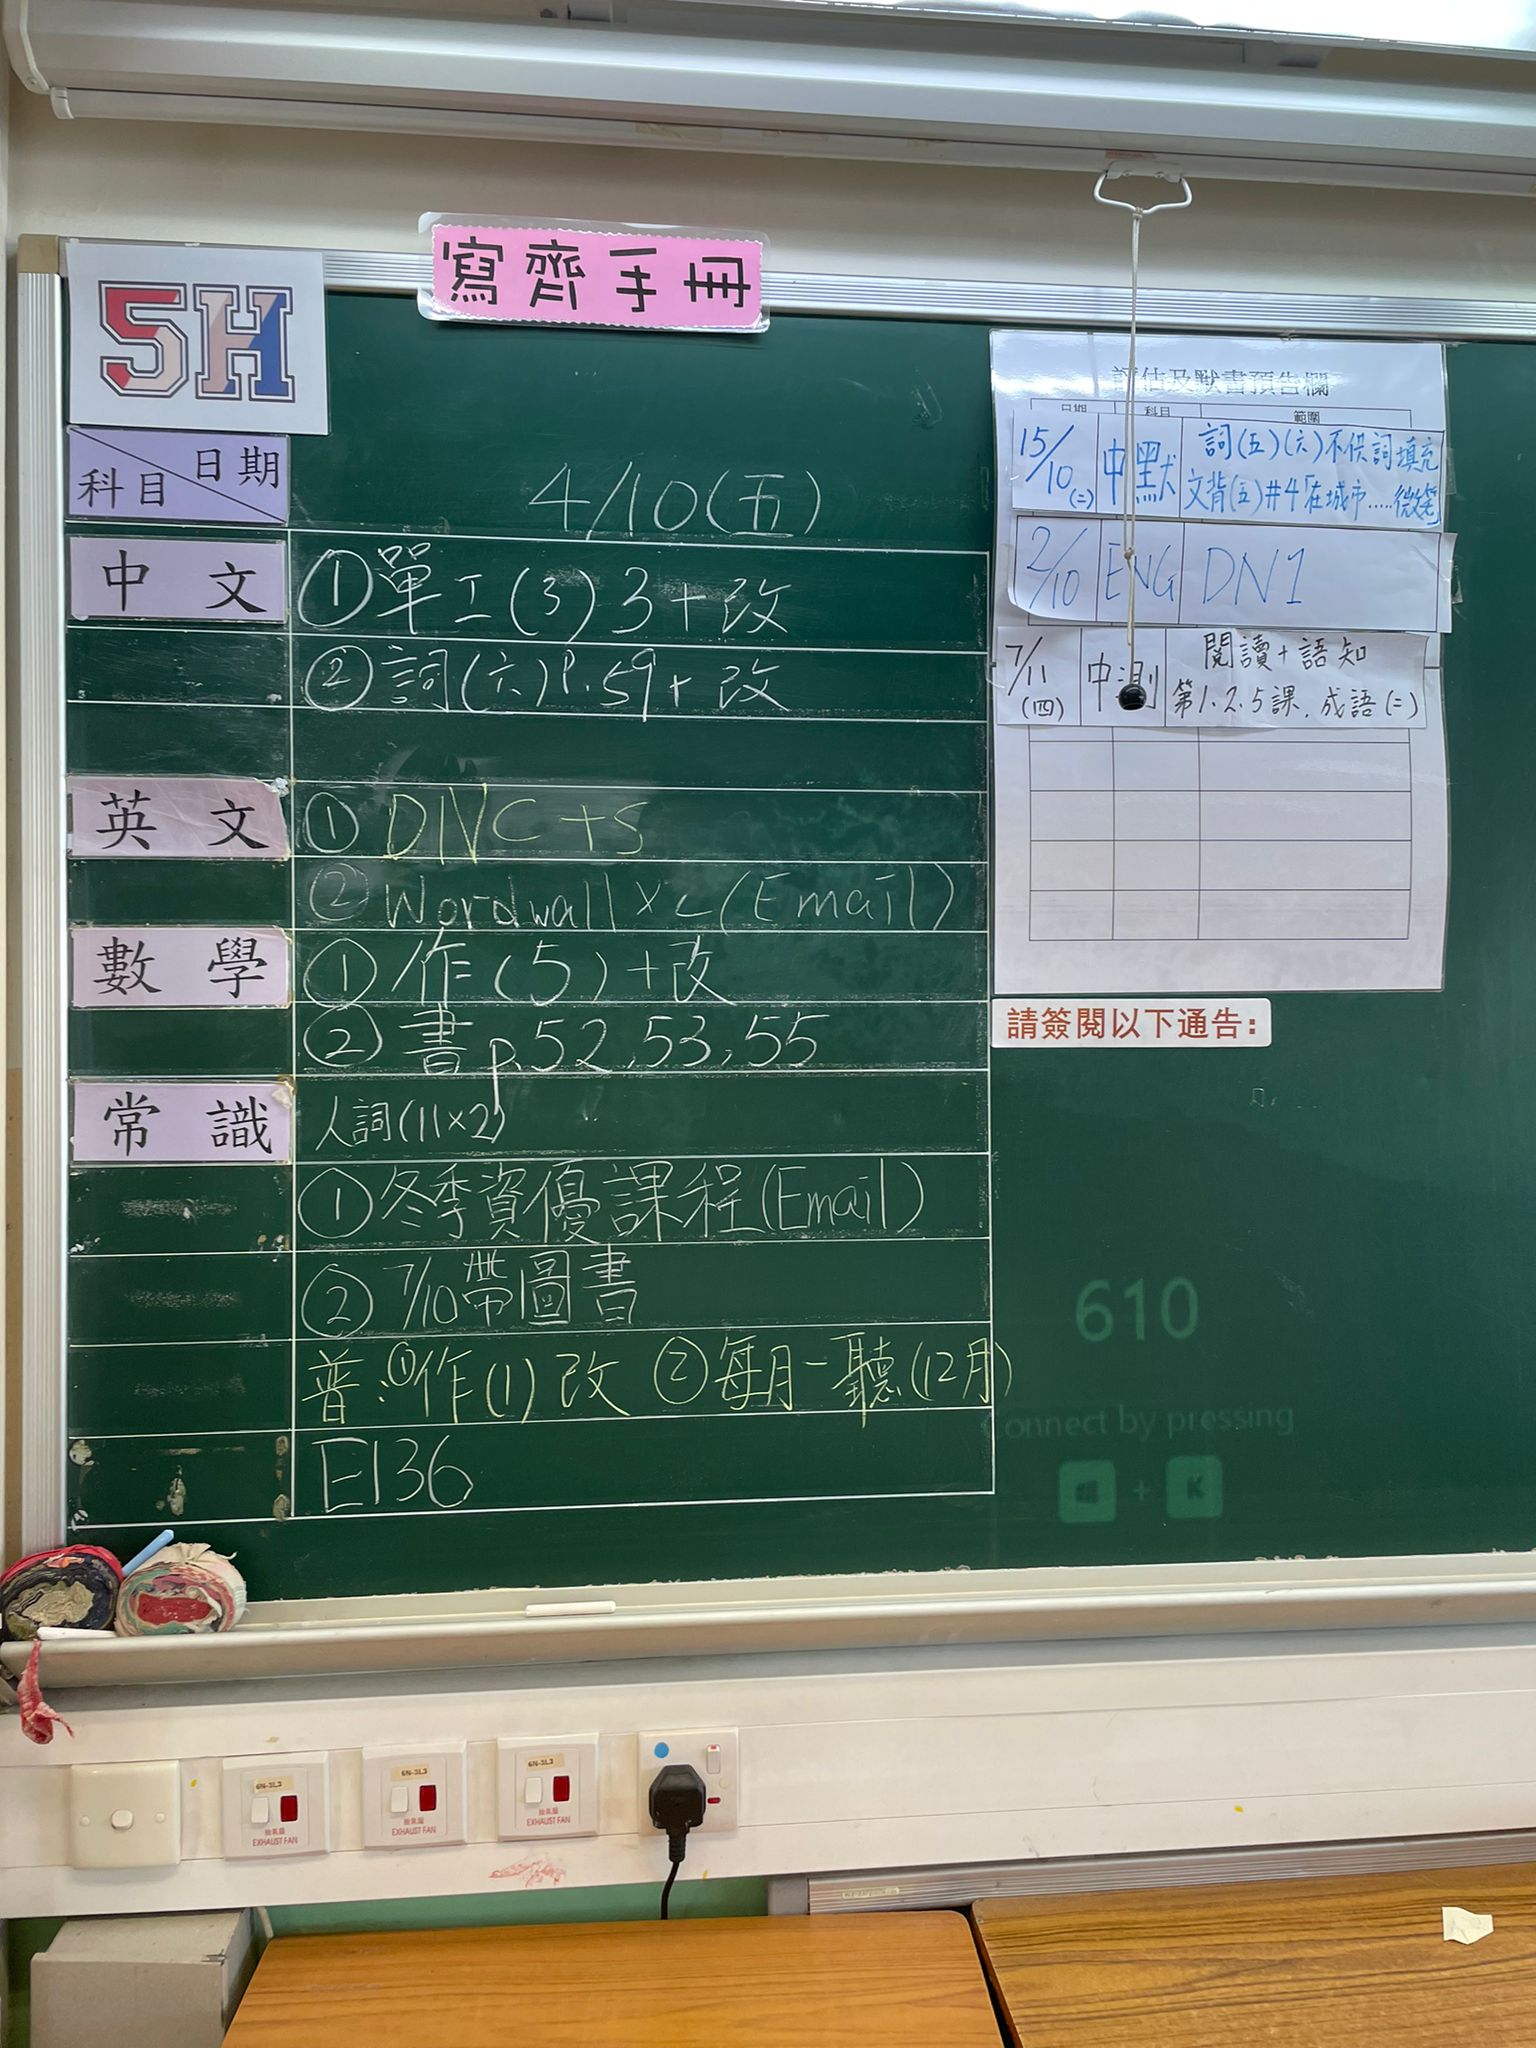 寫齊手冊
5H
科目 日期
4/10(五)
中文 ①單工(3)3+改
②詞(六)P.59+改
英文 ① DNC+S
② Wordwall x2 (Email)
數學 ①作(5)+改
②書p.52,53,55
常識 人詞(11×2)
①冬季資優課程(Email)
②7/10帶圖書
普:①作(1)改 ②每月一聽(12月)
E136
評估及默書預告欄
日期 科目 範圍
15/10(二) 中默 詞(五)(六)不供詞填充
文背(五)#4「在城市.....微笑」
2/10 ENG DN1
7/11(四) 中測 閱讀+語知
第1.2.5課,成語(二)
請簽閱以下通告:
610
onnect by pressing
+ K
6N-3L3
抽氣扇
EXHAUST FAN
6N-3L3
抽氣扇
EXHAUST FAN
6N-3L3
抽氣扇
EXHAUST FAN